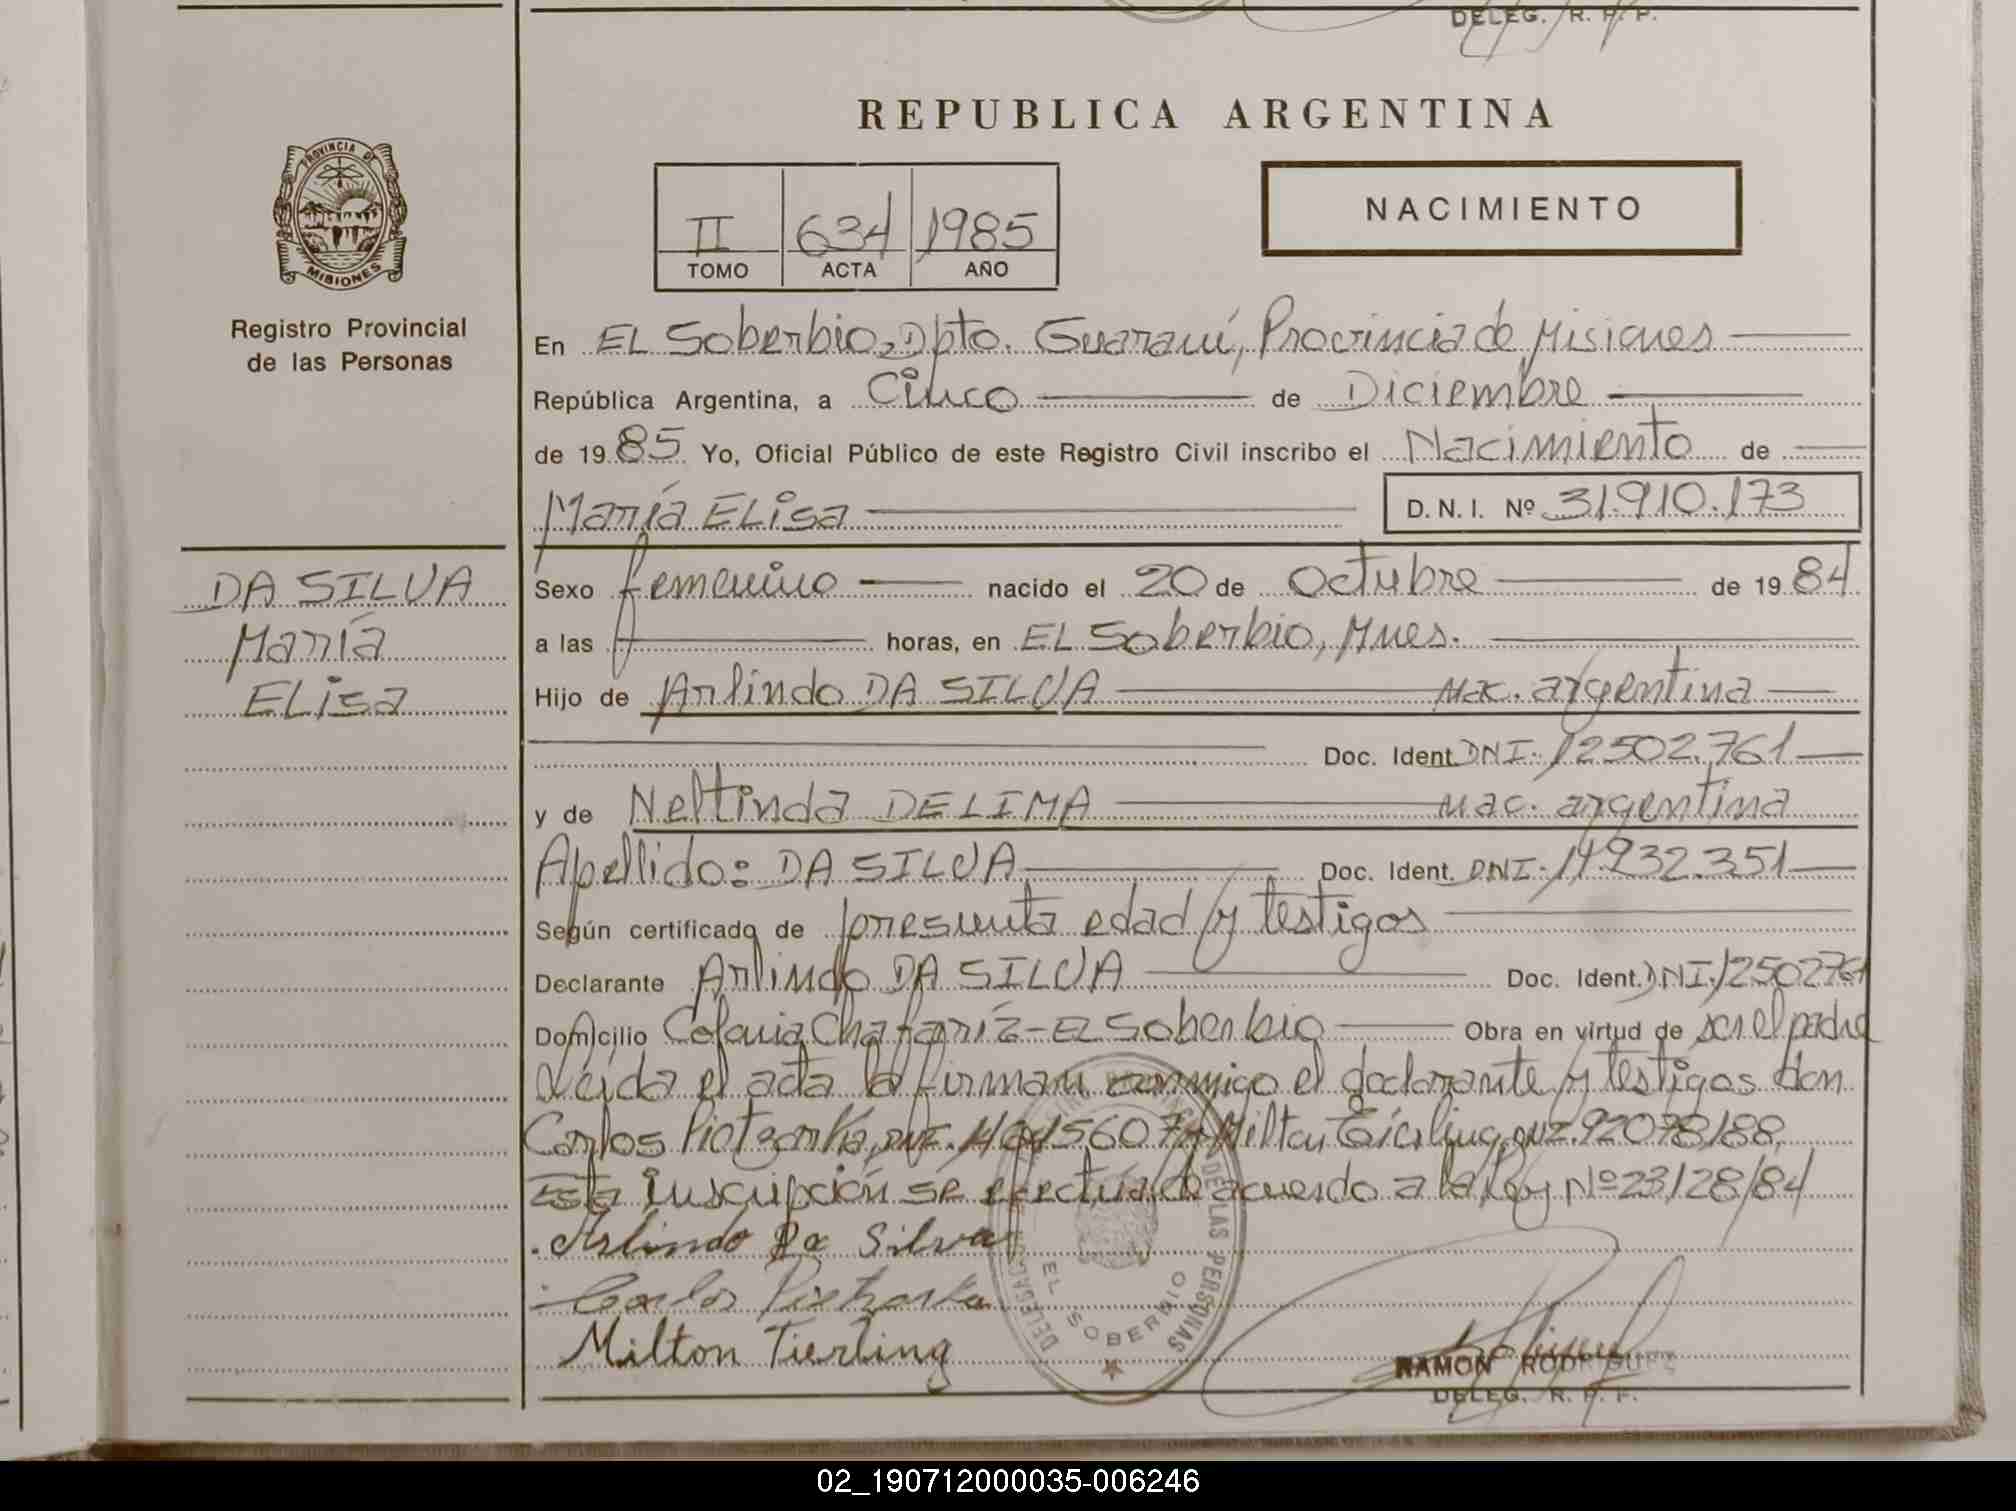 DELEG. R. P. P.
REPUBLICA ARGENTINA
PROVINCIA DE
MISIONES
Registro Provincial
de las Personas
II 634 1985
TOMO ACTA AÑO
NACIMIENTO
En EL Soberbio, Dpto. Guaraní, Provincia de Misiones
República Argentina, a Cinco de Diciembre
de 1985 Yo, Oficial Público de este Registro Civil inscribo el Nacimiento de
María ELisa D. N. I. Nº 31.910.173
DA SILVA
María
ELisa
Sexo femenino nacido el 20 de Octubre de 1984
a las horas, en EL Soberbio, Mnes.
Hijo de Arlindo DA SILVA nac. argentina
Doc. Ident. DNI. 12502.761
y de Neltinda DE LIMA nac. argentina
Apellido: DA SILVA Doc. Ident. DNI. 14.232.351
Según certificado de presunta edad y testigos
Declarante Arlindo DA SILVA Doc. Ident. DNI. 12502761
Domicilio Colonia Chafariz - EL Soberbio Obra en virtud de ser el padre
Leida el acta la firman conmigo el declarante y testigos don
Carlos Milton
Esta inscripción se efectúa de acuerdo a la Ley Nº 23128/84
Arlindo Da Silva
Carlos
Milton Tierling
DELEGACION DE LAS PERSONAS
EL SOBERBIO
RAMON RODRIGUEZ
DELEG. R. P. P.
02_190712000035-006246